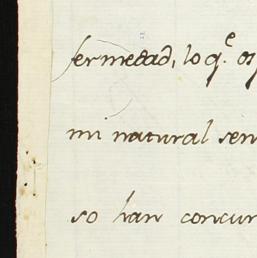 fermedad, lo q.e
mi natural sen
so han concur